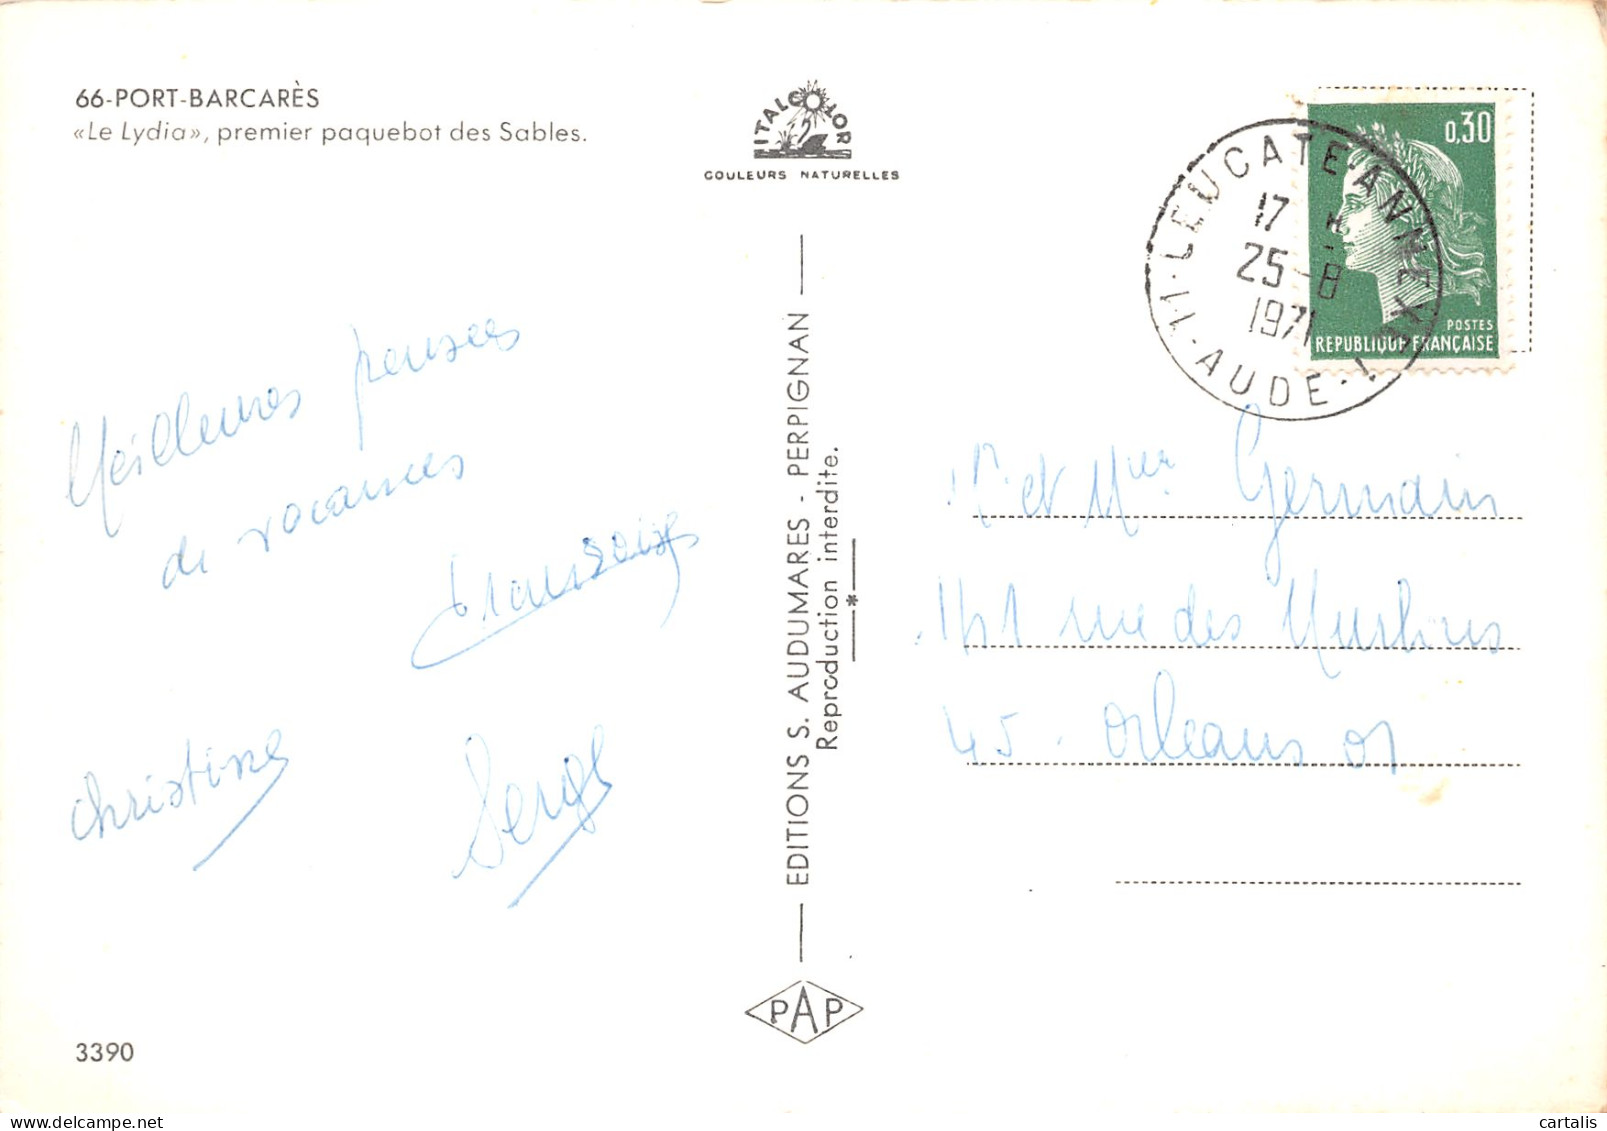 66-PORT-BARCARÈS
«Le Lydia», premier paquebot des Sables.
ITALCOLOR
COULEURS NATURELLES
0,30
POSTES
REPUBLIQUE FRANÇAISE
11 · LEUCATE-ANNEXE 1 · AUDE ·
17 H
25 - 8
1971
Meilleures pensées
de vacances
Françoise
Christine
Serge
EDITIONS S. AUDUMARES - PERPIGNAN
Reproduction interdite.
Mr et Mme Germain
141 rue des Murlins
45. Orléans 01
PAP
3390
cartalis